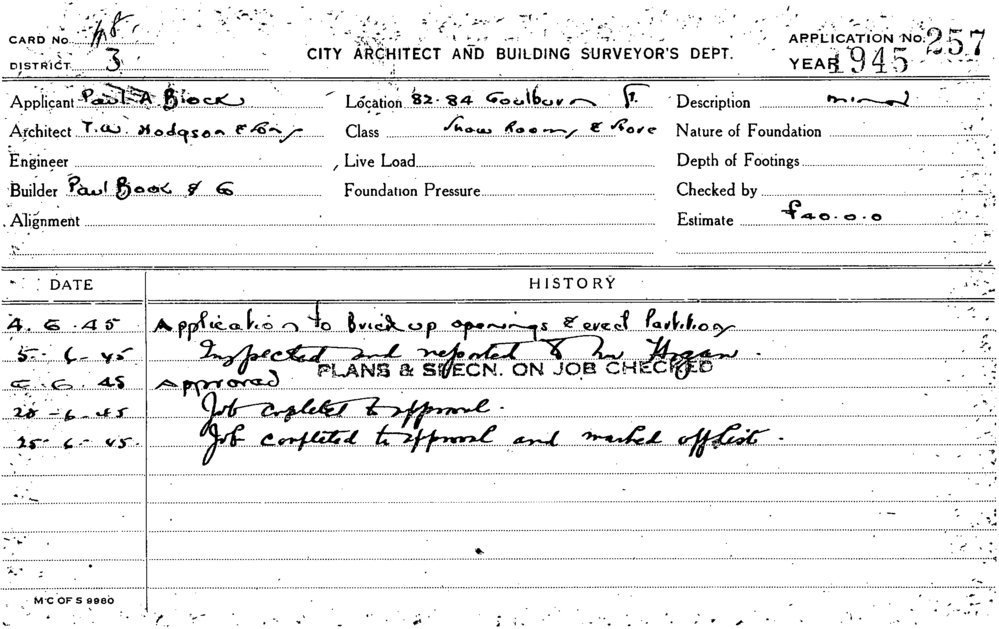 CARD No. 48
DISTRICT 3
CITY ARCHITECT AND BUILDING SURVEYOR'S DEPT.
APPLICATION No. 257
YEAR 1945
Applicant Paul A Block Location 82.84 Goulburn St. Description minor
Architect T.W. Hodgson & Sons Class Show Rooms & Store Nature of Foundation
Engineer Live Load Depth of Footings
Builder Paul Block & Co Foundation Pressure Checked by
Alignment Estimate £40.0.0
DATE HISTORY
4.6.45 Application to Brick up openings & erect Partition
5-6-45 Inspected and reported to Mr Hogan.
PLANS & SPECN. ON JOB CHECKED
6.6.45 Approved
-6-45 Job completed to approval.
25-6-45. Job completed to approval and marked off list.
M'C OF S 9980